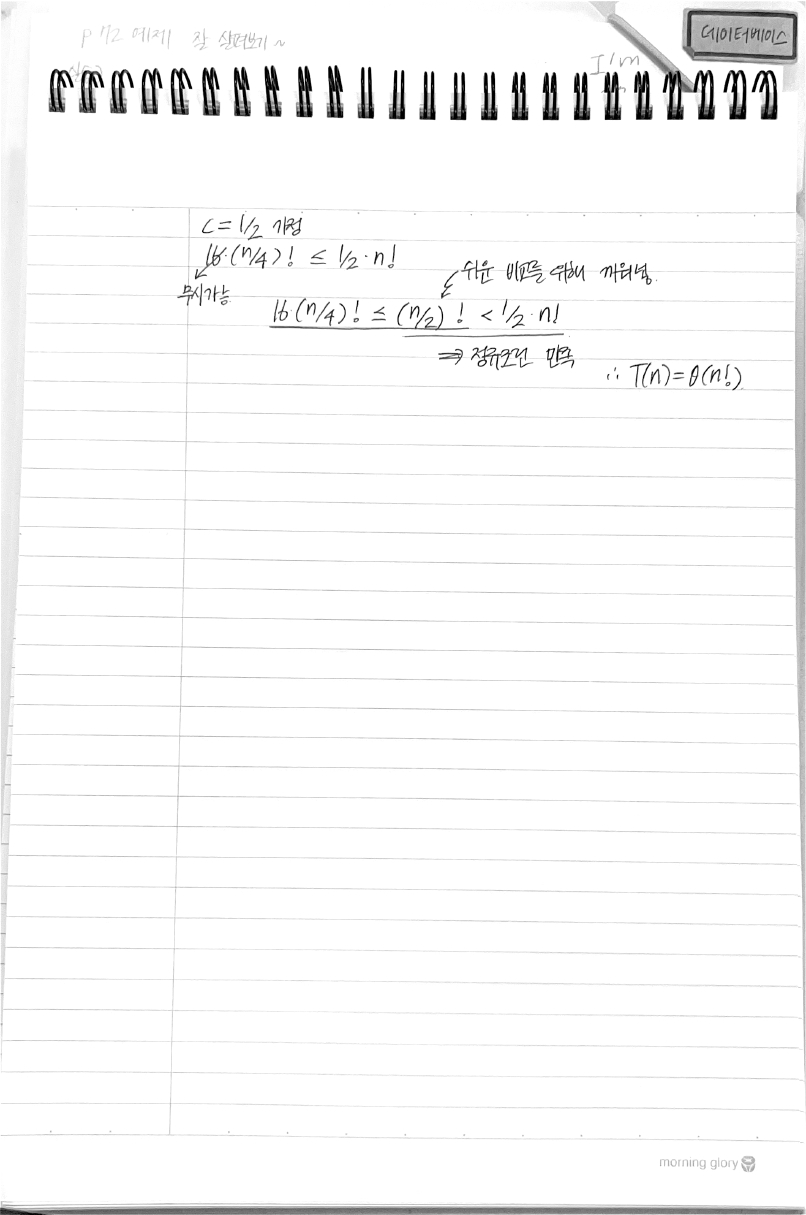 p 72 예제 잘 살펴보기~
데이터베이스
I'm
C = 1/2 가정
16·(n/4)! ≤ 1/2·n!
무시가능
쉬운 비교를 위해 끼워넣
16·(n/4)! ≤ (n/2)! < 1/2·n!
⇒ 정규조건 만족
∴ T(n)=θ(n!)
morning glory